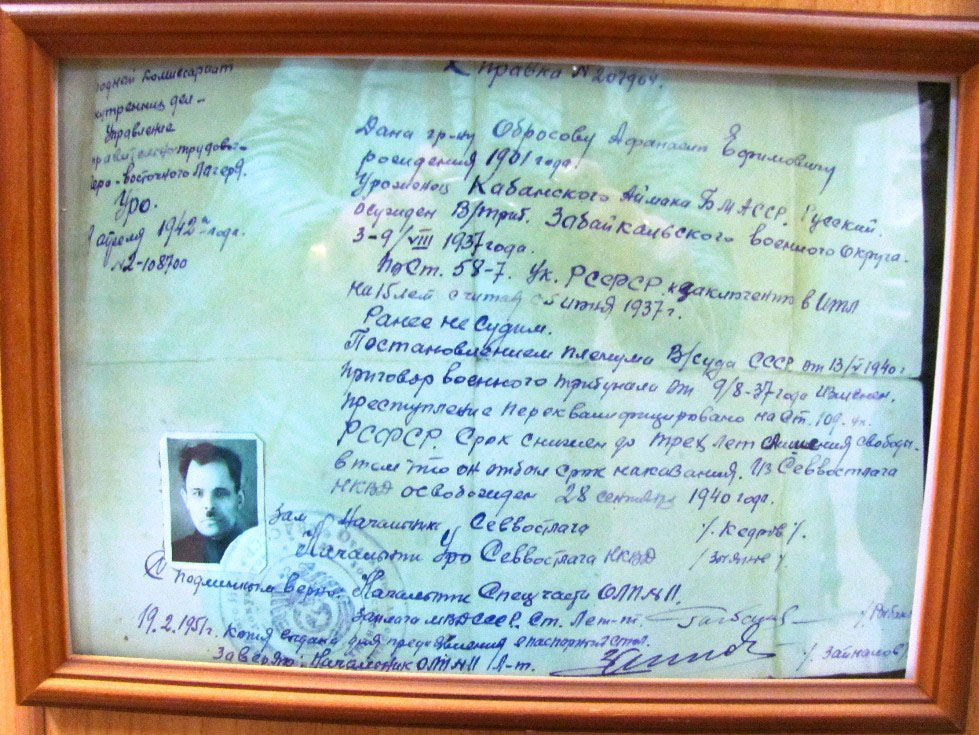 родной Комиссариат
нутренниц дел-
Управление
равительно-трудовы-
веро-восточного Лагеря.
Уро.
апреля 1942 года.
№2-108700
Справка №
Дана гр-ну Обросову Афанасию Ефимовичу
рождения 1901 года.
Урожениц Кабанского Аймака БМАССР. Русский.
осужден В/триб. Забайкальского военного Округа.
3-9/VIII 1937 года.
По Ст. 58-7. Ук. РСФСР. к заключению в Итл
на 15 лет считая с июня 1937 г.
Ранее не Судим.
Постановлением пленума В/Суда СССР от 13/V 1940 г.
Приговор военного трибунала от 9/8-37 года Изменен.
Преступление переквалифицировано на Ст. 109. ук.
РСФСР. Срок снижен до трех лет лишения свободы.
в том что он отбыл срок наказания. Из Севвостлага
НКВД освобожден 28 сентября 1940 года.
Зам Начальника У Севвостлага /. Кедров /.
Начальник Уро Севвостлага НКВД
С подлинным верно. Начальник Спец части ОЛП №11.
Ст. Лей-т.
19.2.1951 г. Копия выдана для предъявления в паспортный стол.
Заверяю. Начальник ОЛП №11 Л-т. /. Зайналов